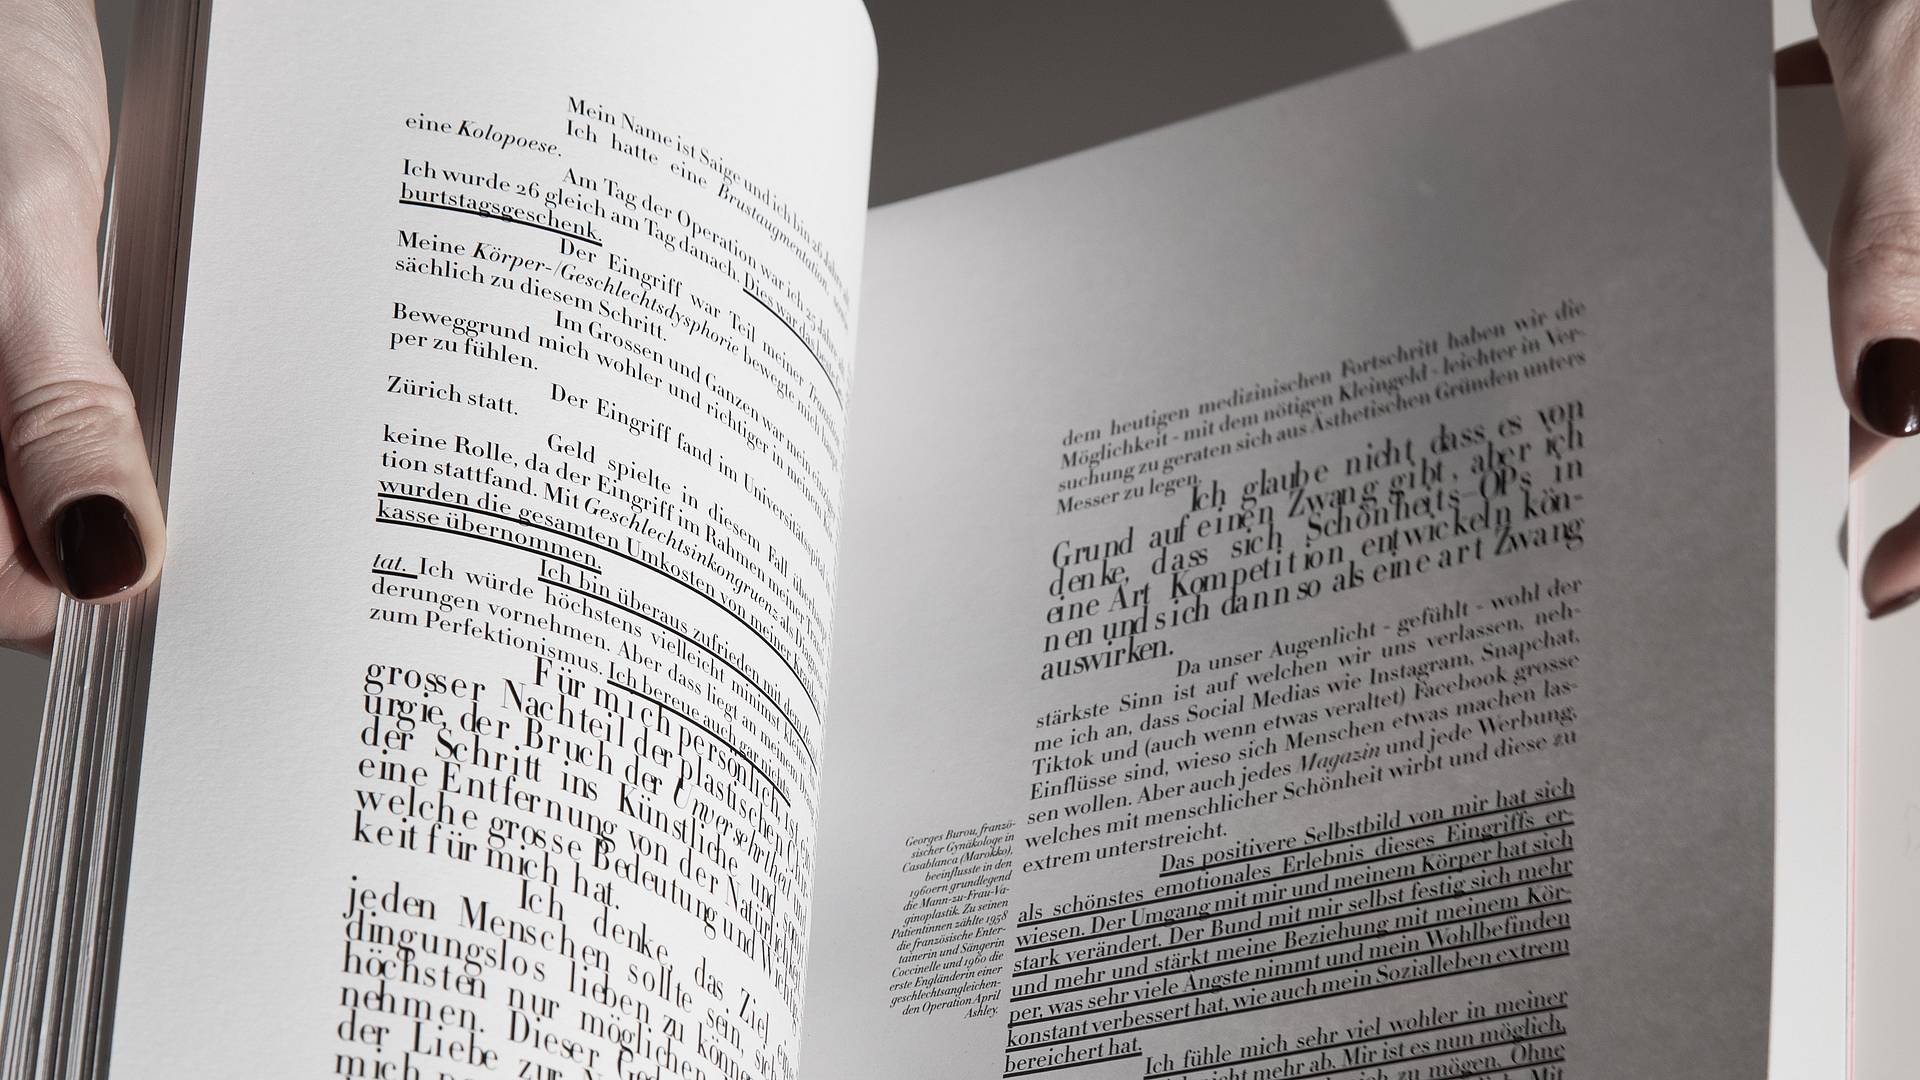 Mein Name ist Saige und ich bin 26 Jahre alt.
Ich hatte eine Brustaugmentation, sowie
eine Kolopoese.
Am Tag der Operation war ich 25 Jahre alt.
Ich wurde 26 gleich am Tag danach. Dies war das beste
burtstagsgeschenk.
Der Eingriff war Teil meiner
Meine Körper-/Geschlechtsdysphorie bewegte mich
sächlich zu diesem Schritt.
Im Grossen und Ganzen war mein einziger
Beweggrund mich wohler und richtiger in meinem
per zu fühlen.
Der Eingriff fand im Universitätsspital
Zürich statt.
Geld spielte in diesem Fall
keine Rolle, da der Eingriff im Rahmen meiner
tion stattfand. Mit Geschlechtsinkongruenz als
wurden die gesamten Umkosten von meiner
kasse übernommen.
Ich bin überaus zufrieden mit dem
tat. Ich würde höchstens vielleicht minimst kleine
derungen vornehmen. Aber dass liegt an meinem
zum Perfektionismus. Ich bereue auch gar nichts.
Für mich persönlich, ist
grosser Nachteil der plastischen
urgie, der Bruch der Unversehrtheit und
der Schritt ins Künstliche und somit
eine Entfernung von der Natürlichkeit
welche grosse Bedeutung und
keit für mich hat.
Ich denke, das Ziel
jeden Menschen sollte sein, sich
dingungslos lieben zu können
höchsten nur möglichen
nehmen. Dieser
der Liebe zur
mich
dem heutigen medizinischen Fortschritt haben wir die
Möglichkeit - mit dem nötigen Kleingeld - leichter in Ver-
suchung zu geraten sich aus Ästhetischen Gründen unters
Messer zu legen.
Ich glaube nicht, dass es von
Grund auf einen Zwang gibt, aber ich
denke, dass sich Schönheits-OPs in
eine Art Kompetition entwickeln kön-
nen und sich dann so als eine art Zwang
auswirken.
Da unser Augenlicht - gefühlt - wohl der
stärkste Sinn ist auf welchen wir uns verlassen, neh-
me ich an, dass Social Medias wie Instagram, Snapchat,
Tiktok und (auch wenn etwas veraltet) Facebook grosse
Einflüsse sind, wieso sich Menschen etwas machen las-
sen wollen. Aber auch jedes Magazin und jede Werbung,
welches mit menschlicher Schönheit wirbt und diese zu
extrem unterstreicht.
Georges Burou, franzö-
sischer Gynäkologe in
Casablanca (Marokko),
beeinflusste in den
1960ern grundlegend
die Mann-zu-Frau-Va-
ginoplastik. Zu seinen
Patientinnen zählte 1958
die französische Enter-
tainerin und Sängerin
Coccinelle und 1960 die
erste Engländerin einer
geschlechtsangleichen-
den Operation April
Ashley.
Das positivere Selbstbild von mir hat sich
als schönstes emotionales Erlebnis dieses Eingriffs er-
wiesen. Der Umgang mit mir und meinem Körper hat sich
stark verändert. Der Bund mit mir selbst festig sich mehr
und mehr und stärkt meine Beziehung mit meinem Kör-
per, was sehr viele Ängste nimmt und mein Wohlbefinden
konstant verbessert hat, wie auch mein Sozialleben extrem
bereichert hat.
Ich fühle mich sehr viel wohler in meiner
nicht mehr ab. Mir ist es nun möglich,
zu mögen. Ohne
Mit